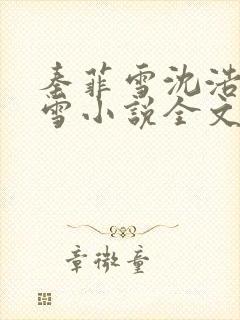 秦菲雪沈浩
雪小说全文
章微童